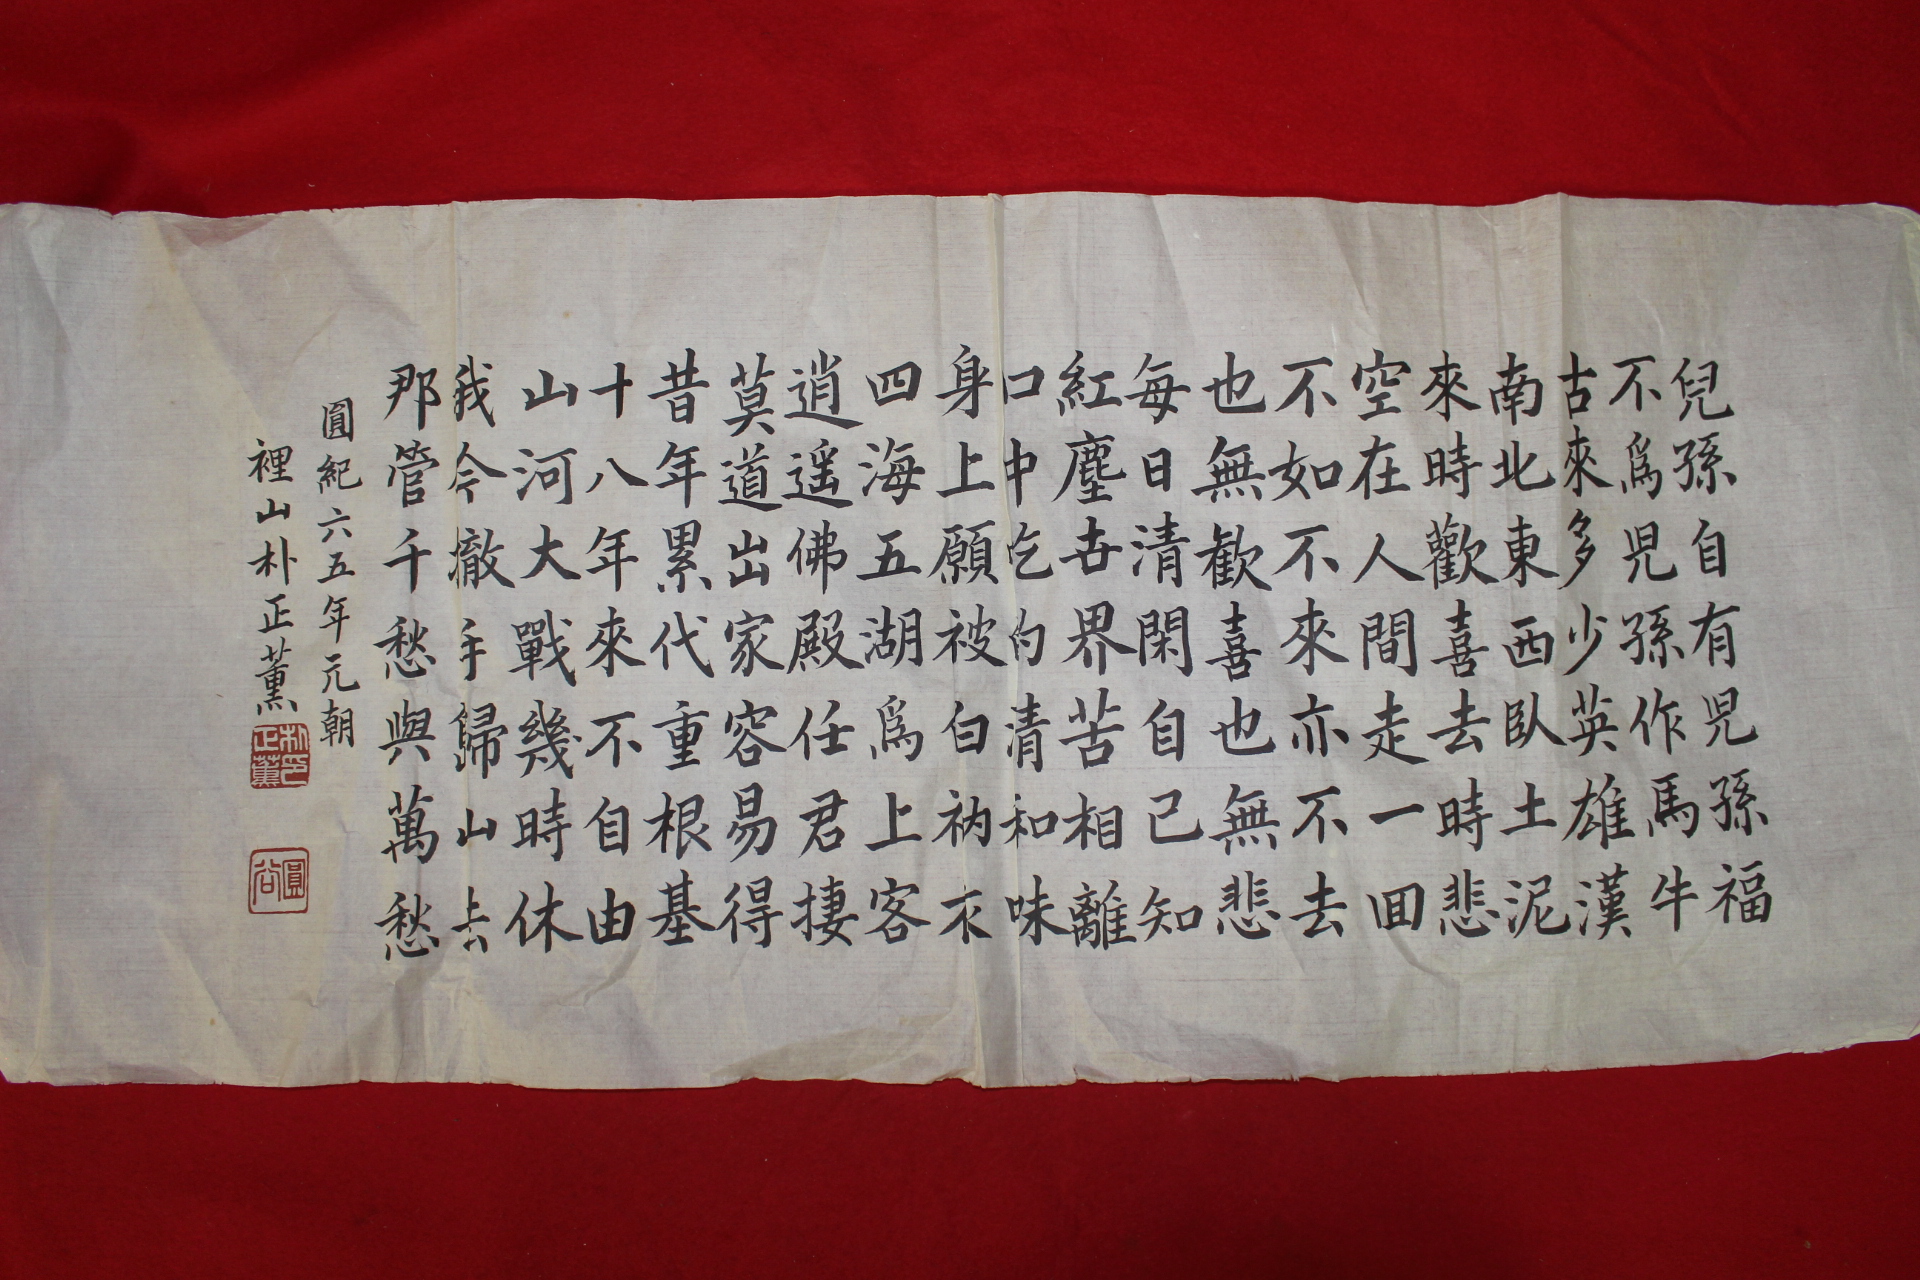 兒孫自有児孫福
不爲児孫作馬牛
古來多少英雄漢
南北東西臥土泥
來時歡喜去時悲
空在人間走一回
不如不來亦不去
也無歓喜也無悲
每日清閑自己知
紅塵世界苦相離
口中吃的清和味
身上願被白衲衣
四海五湖爲上客
逍遥佛殿任君捿
莫道出家容易得
昔年累代重根基
十八年來不自由
山河大戰幾時休
我今撤手歸山去
那管千愁與萬愁
圓紀六五年元朝
裡山朴正薰
朴正薰印
圓谷